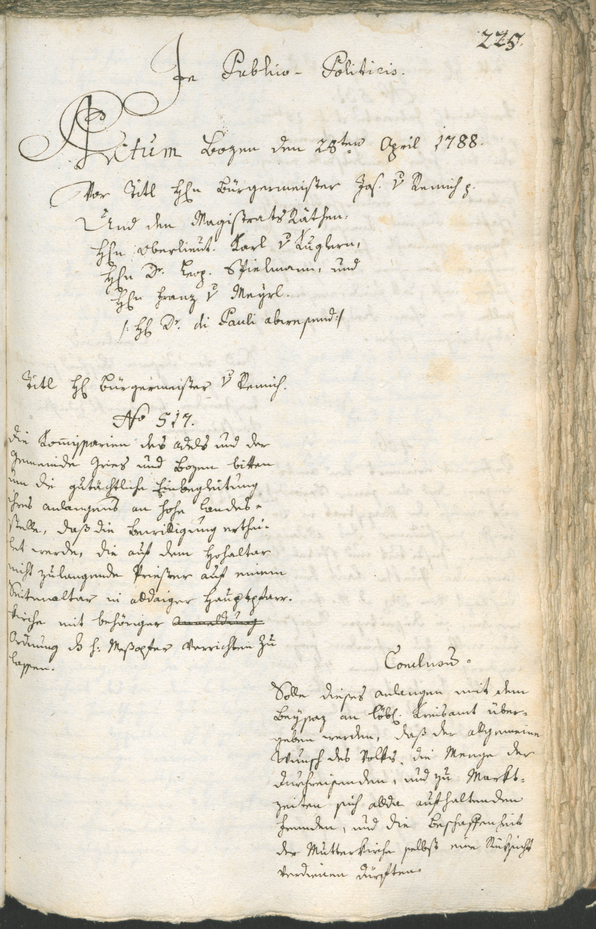 225.
In Publico-Politicis.
Actum Bozen den 28ten April 1788.
Vor Titl Hhn Bürgermeister Jos. v Remich p.
Und den Magistrats Räthen,
Hhn Oberlieut. Karl v Kuglern,
Hhn Dr. Leop. Spielmann, und
Hhn Franz v Meyrl.
/: Hh Dr. di Pauli abwesend :/
Titl Hh Bürgermeister v Remich.
No 517.
die Kommissarien des Adels und der
Gemeinde Gries und Bozen bitten
um die gutächtliche Einbegleitung
ihres Anlangens an hohe Landes-
stelle, daß die Bewilligung erthei-
let werde, die auf dem Hohaltar
nicht zulangende Priester auf einem
Seitenaltar in alldaiger Hauptpfarr-
kirche mit behöriger
Ordnung das h: Meßopfer verrichten zu
lassen.
Conclusum.
Solle dieses Anlangen mit dem
Beysaz an löbl. Kreisamt über-
geben werden, daß der allgemeine
Wunsch des Volks, die Menge der
Durchreisenden, und zu Markt-
zeiten sich allda aufhaltenden
Fremden, und die Beschaffenheit
der Mutterkirche selbst eine Rücksicht
verdienen dürften.